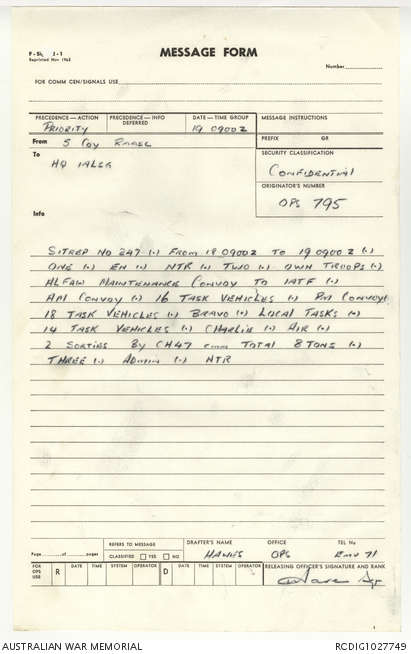 MESSAGE FORM
Reprinted Nov 1965
Number
FOR COMM CEN/SIGNALS USE
PRECEDENCE—ACTION PRECEDENCE—INFO DEFERRED DATE—TIME GROUP MESSAGE INSTRUCTIONS
PRIORITY 19 0900Z
PREFIX GR
From 5 COY RAASC
To HQ 1ALSG
SECURITY CLASSIFICATION
CONFIDENTIAL
ORIGINATOR'S NUMBER
OPS 795
Info
SITREP NO 247 (.) FROM 18 0900Z TO 19 0900Z (.)
ONE (.) EN (.) NTR (.) TWO (.) OWN TROOPS (.)
ALFAW MAINTENANCE CONVOY TO 1ATF (.)
AM CONVOY (.) 16 TASK VEHICLES (.) PM CONVOY
18 TASK VEHICLES (.) BRAVO (.) LOCAL TASKS (.)
14 TASK VEHICLES (.) CHARLIE (.) AIR (.)
2 SORTIES BY CH47 cmm TOTAL 8 TONS (.)
THREE (.) ADMIN (.) NTR
Page of pages
REFERS TO MESSAGE
CLASSIFIED YES NO
DRAFTER'S NAME OFFICE TEL No
HAWES OPS
FOR OPS USE R DATE TIME SYSTEM OPERATOR D DATE TIME SYSTEM OPERATOR RELEASING OFFICER'S SIGNATURE AND RANK
AUSTRALIAN WAR MEMORIAL
RCDIG1027749